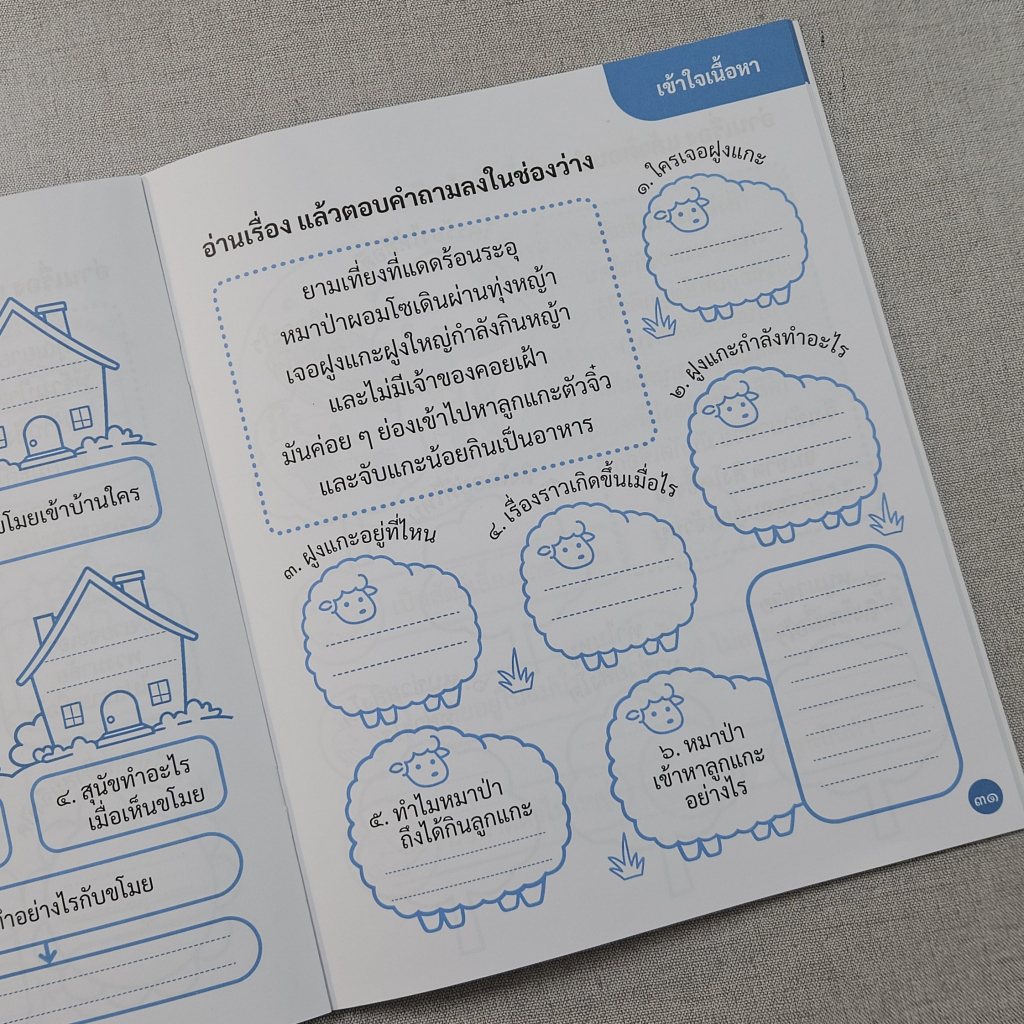 บโมยเข้าบ้านใคร
๔. สุนัขทำอะไร
เมื่อเห็นขโมย
ทำอย่างไรกับขโมย
เข้าใจเนื้อหา
อ่านเรื่อง แล้วตอบคำถามลงในช่องว่าง
ยามเที่ยงที่แดดร้อนระอุ
หมาป่าผอมโซเดินผ่านทุ่งหญ้า
เจอฝูงแกะฝูงใหญ่กำลังกินหญ้า
และไม่มีเจ้าของคอยเฝ้า
มันค่อย ๆ ย่องเข้าไปหาลูกแกะตัวจิ๋ว
และจับแกะน้อยกินเป็นอาหาร
๑. ใครเจอฝูงแกะ
๒. ฝูงแกะกำลังทำอะไร
๓. ฝูงแกะอยู่ที่ไหน
๔. เรื่องราวเกิดขึ้นเมื่อไร
๕. ทำไมหมาป่า
ถึงได้กินลูกแกะ
๖. หมาป่า
เข้าหาลูกแกะ
อย่างไร
๓๑